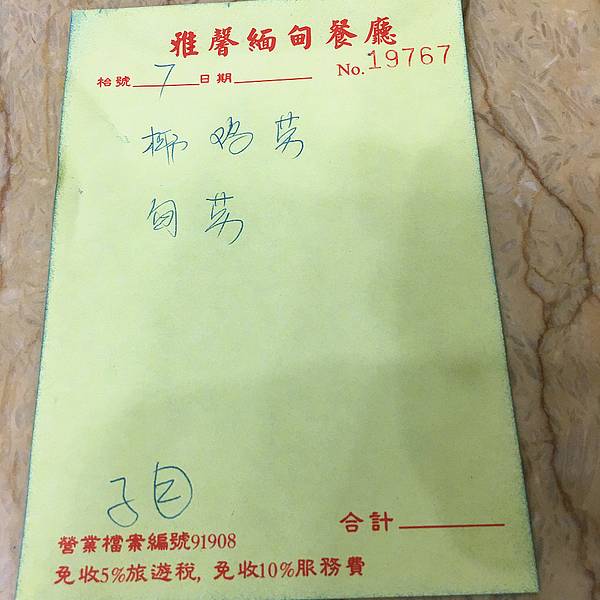 雅馨緬甸餐廳
枱號 7 日期 No.19767
椰鸡英
甸英
合計
營業檔案編號91908
免收5%旅遊稅, 免收10%服務費